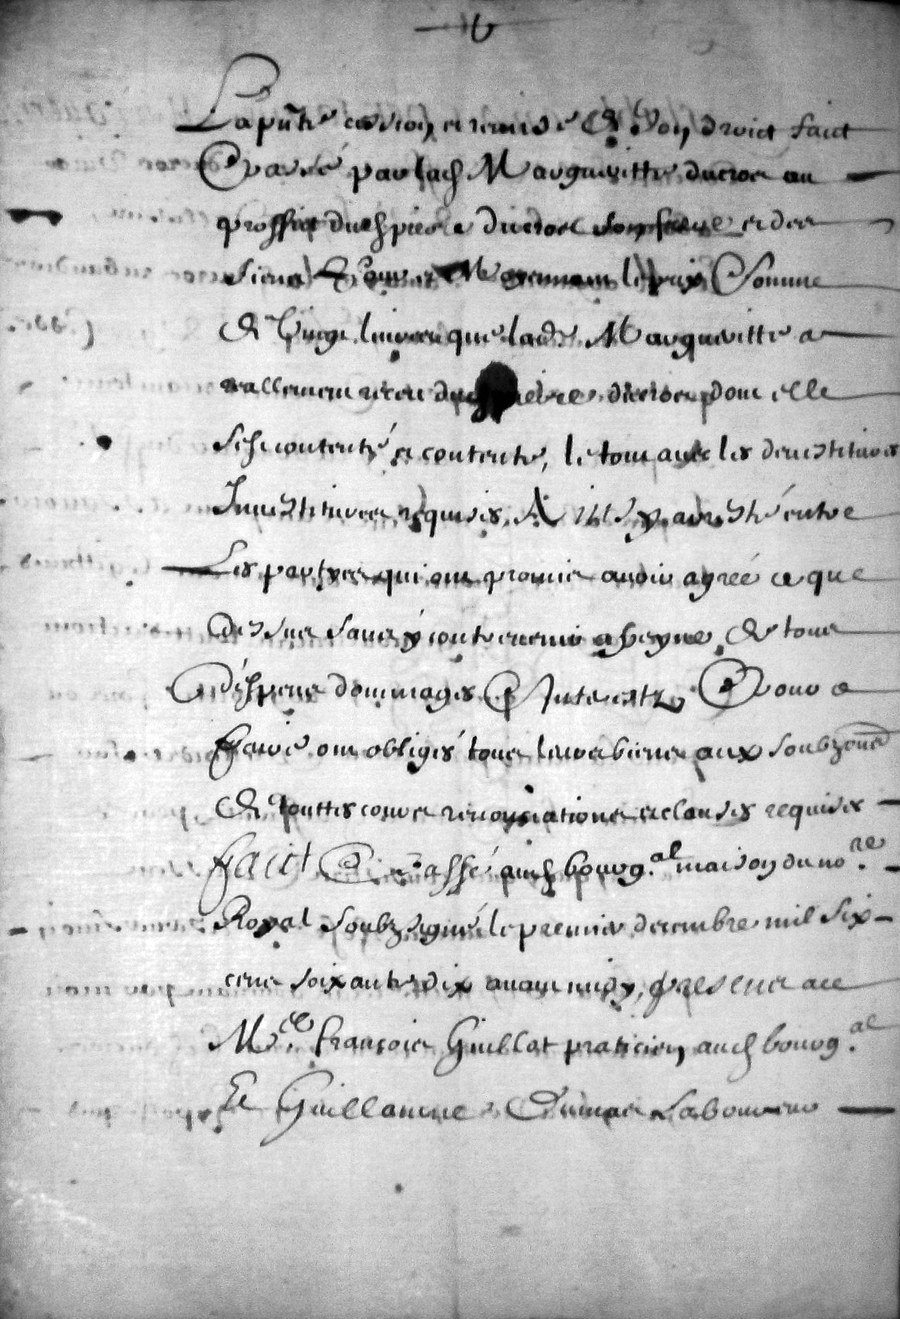 La pnte cession et remise & don droict faict
& passé par lad Margueritte ducros au
proffict dud pierre ducros son frere et des
siens & pour et Moyennant le prix & somme
de vingt livres que lade Margueritte a
reallement receu dud pierre ducros dont elle
sest contenté et contente, le tout avec les devestitures
Investitures requises, Ainsy arresté entre
Les partyes qui ont promis avoir agreé ce que
dessus sans y contrevenir a peyne de tous
despens dommages & Interestz & pour ce
faire ont obligés tous leurs biens aux soubz
& touttes cours renonciations et clauses requises
faict & passé aud bourg.al maison du no.re
Royal soubzsigné le premier decembre mil six
cens soixante dix avant midy, presens a ce
M.re françois Guillot praticien aud bourg.al
Et Guillaume Laboureur